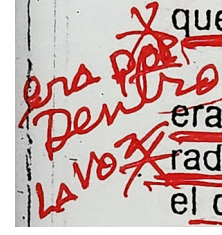 que
era por
Dentro
era
LA VOZ
rad
el c